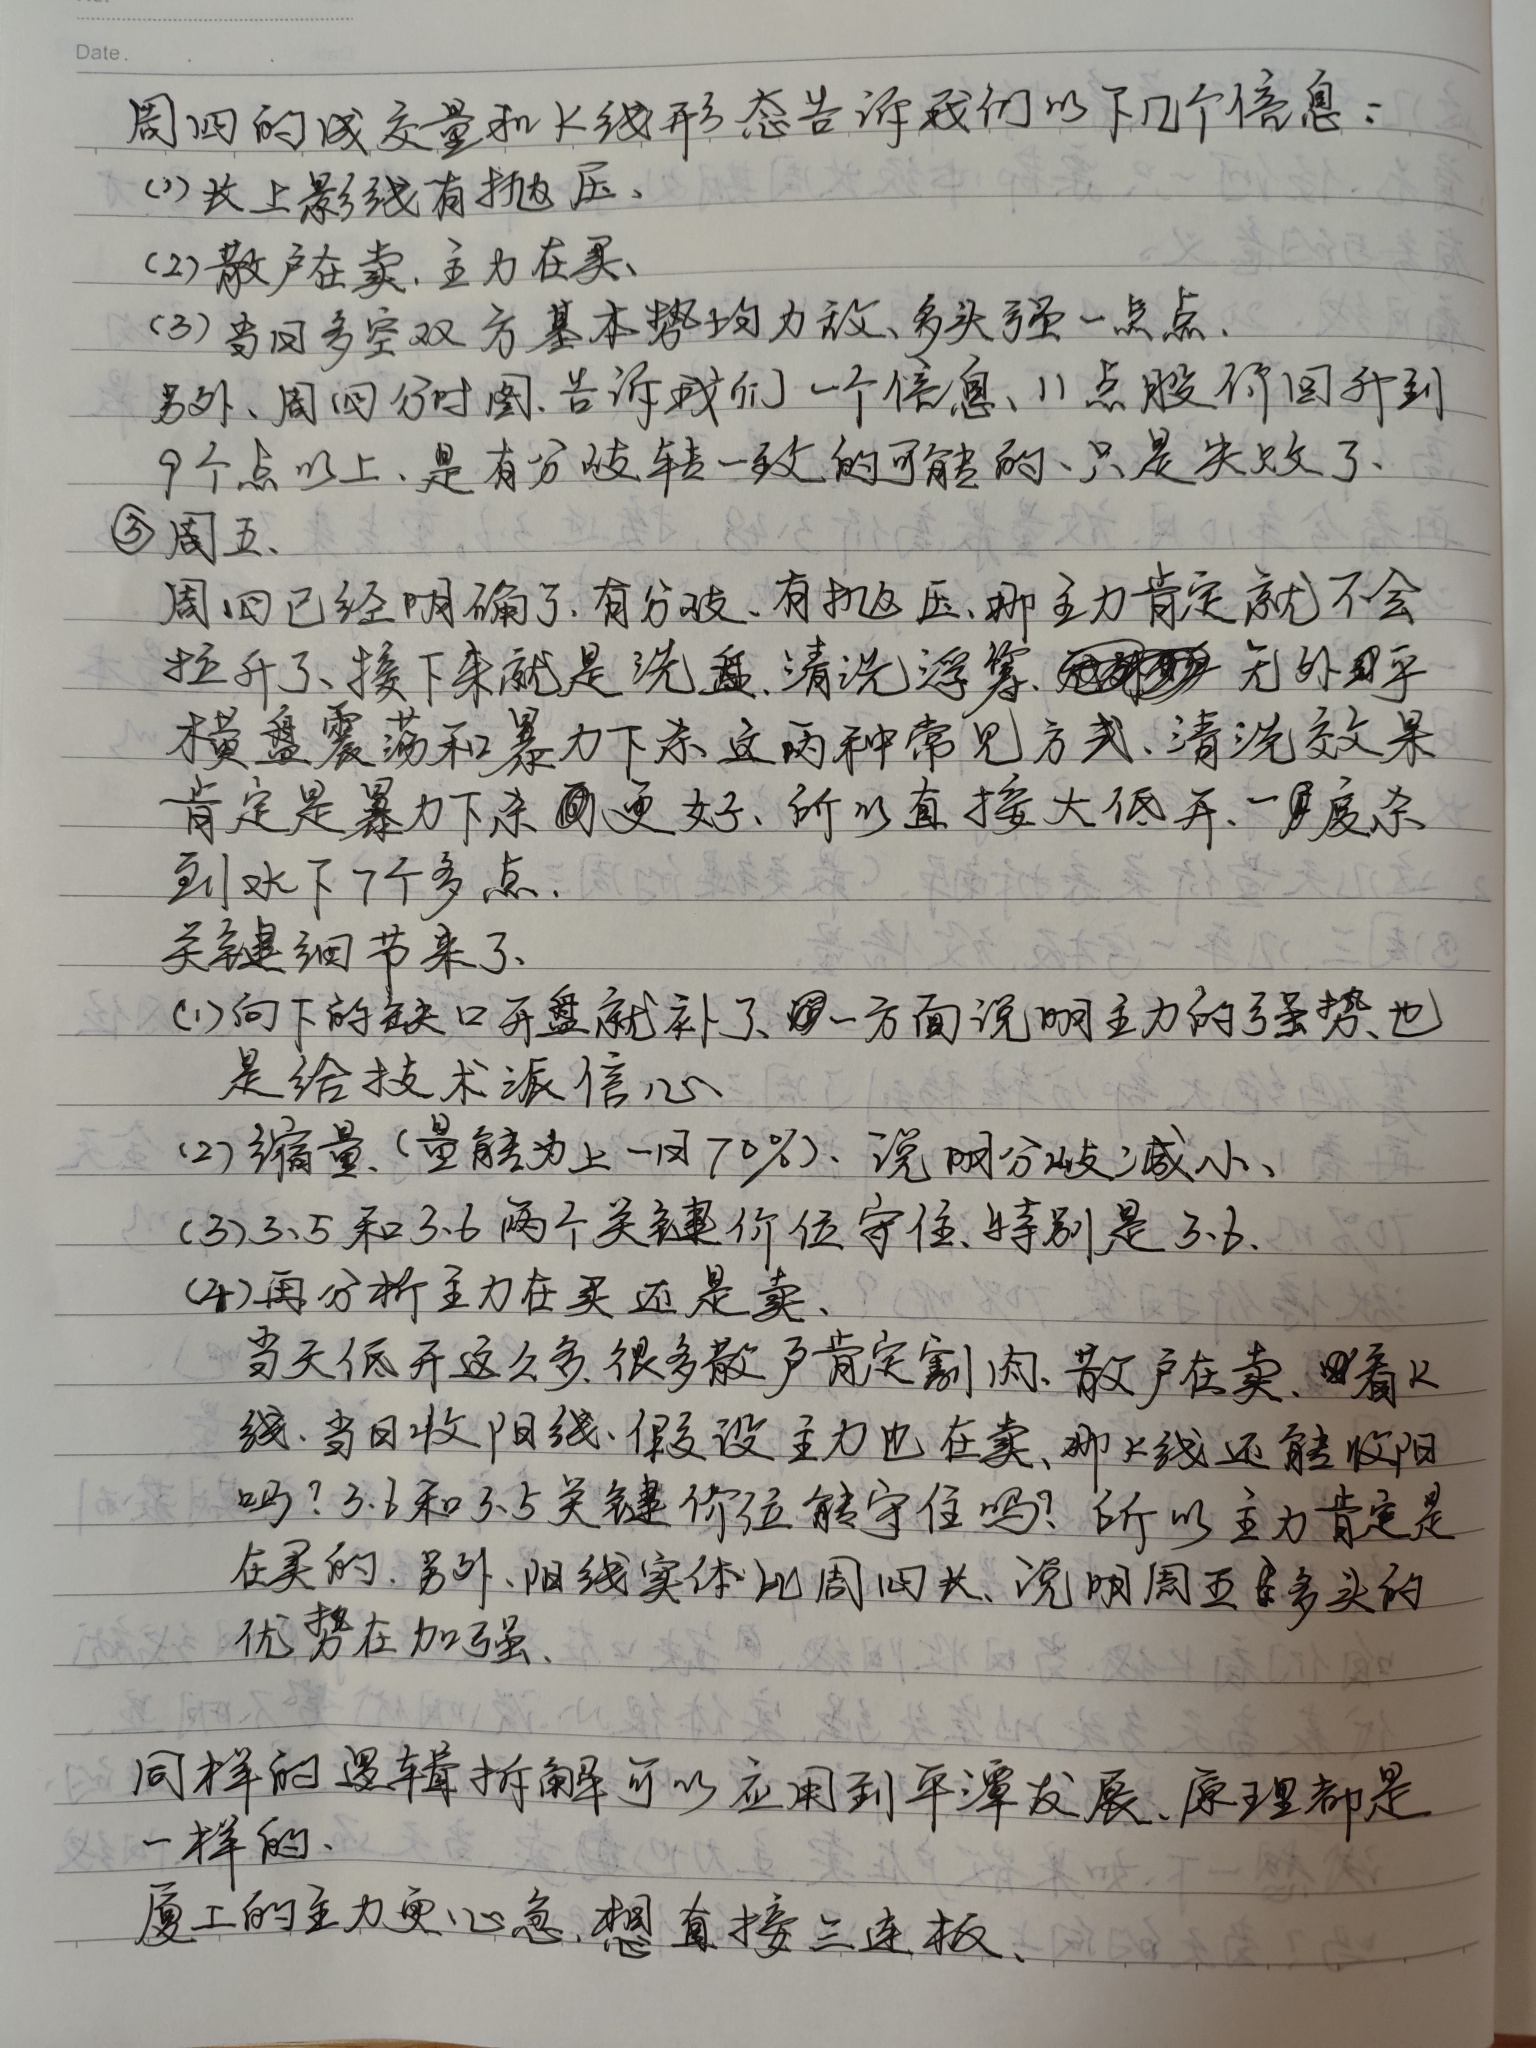 Date.
周四的成交量和K线形态告诉我们以下几个信息：
(1)长上影线有抛压、
(2)散户在卖、主力在买、
(3)当日多空双方基本势均力敌、多头强一点点、
另外、周四分时图、告诉我们一个信息、11点股价回升到
9个点以上、是有分歧转一致的可能的、只是失败了、
③周五、
周四已经明确了、有分歧、有抛压、那主力肯定就不会
拉升了、接下来就是洗盘、清洗浮筹、无外乎
横盘震荡和暴力下杀这两种常见方式、清洗效果
肯定是暴力下杀更好、所以直接大低开、一度杀
到水下7个多点、
关键细节来了、
(1)向下的缺口开盘就补了、一方面说明主力的强势、也
是给技术派信心
(2)缩量、(量能为上一日70%)、说明分歧减小、
(3)3.5和3.6两个关键价位守住、特别是3.6、
(4)再分析主力在买还是卖、
当天低开这么多、很多散户肯定割肉、散户在卖、看K
线、当日收阳线、假设主力也在卖、那K线还能收阳
吗?3.6和3.5关键价位能守住吗?所以主力肯定是
在买的、另外、阳线实体比周四长、说明周五多头的
优势在加强、
同样的逻辑拆解可以应用到平潭发展、原理都是
一样的、
厦工的主力更心急、想直接三连板、